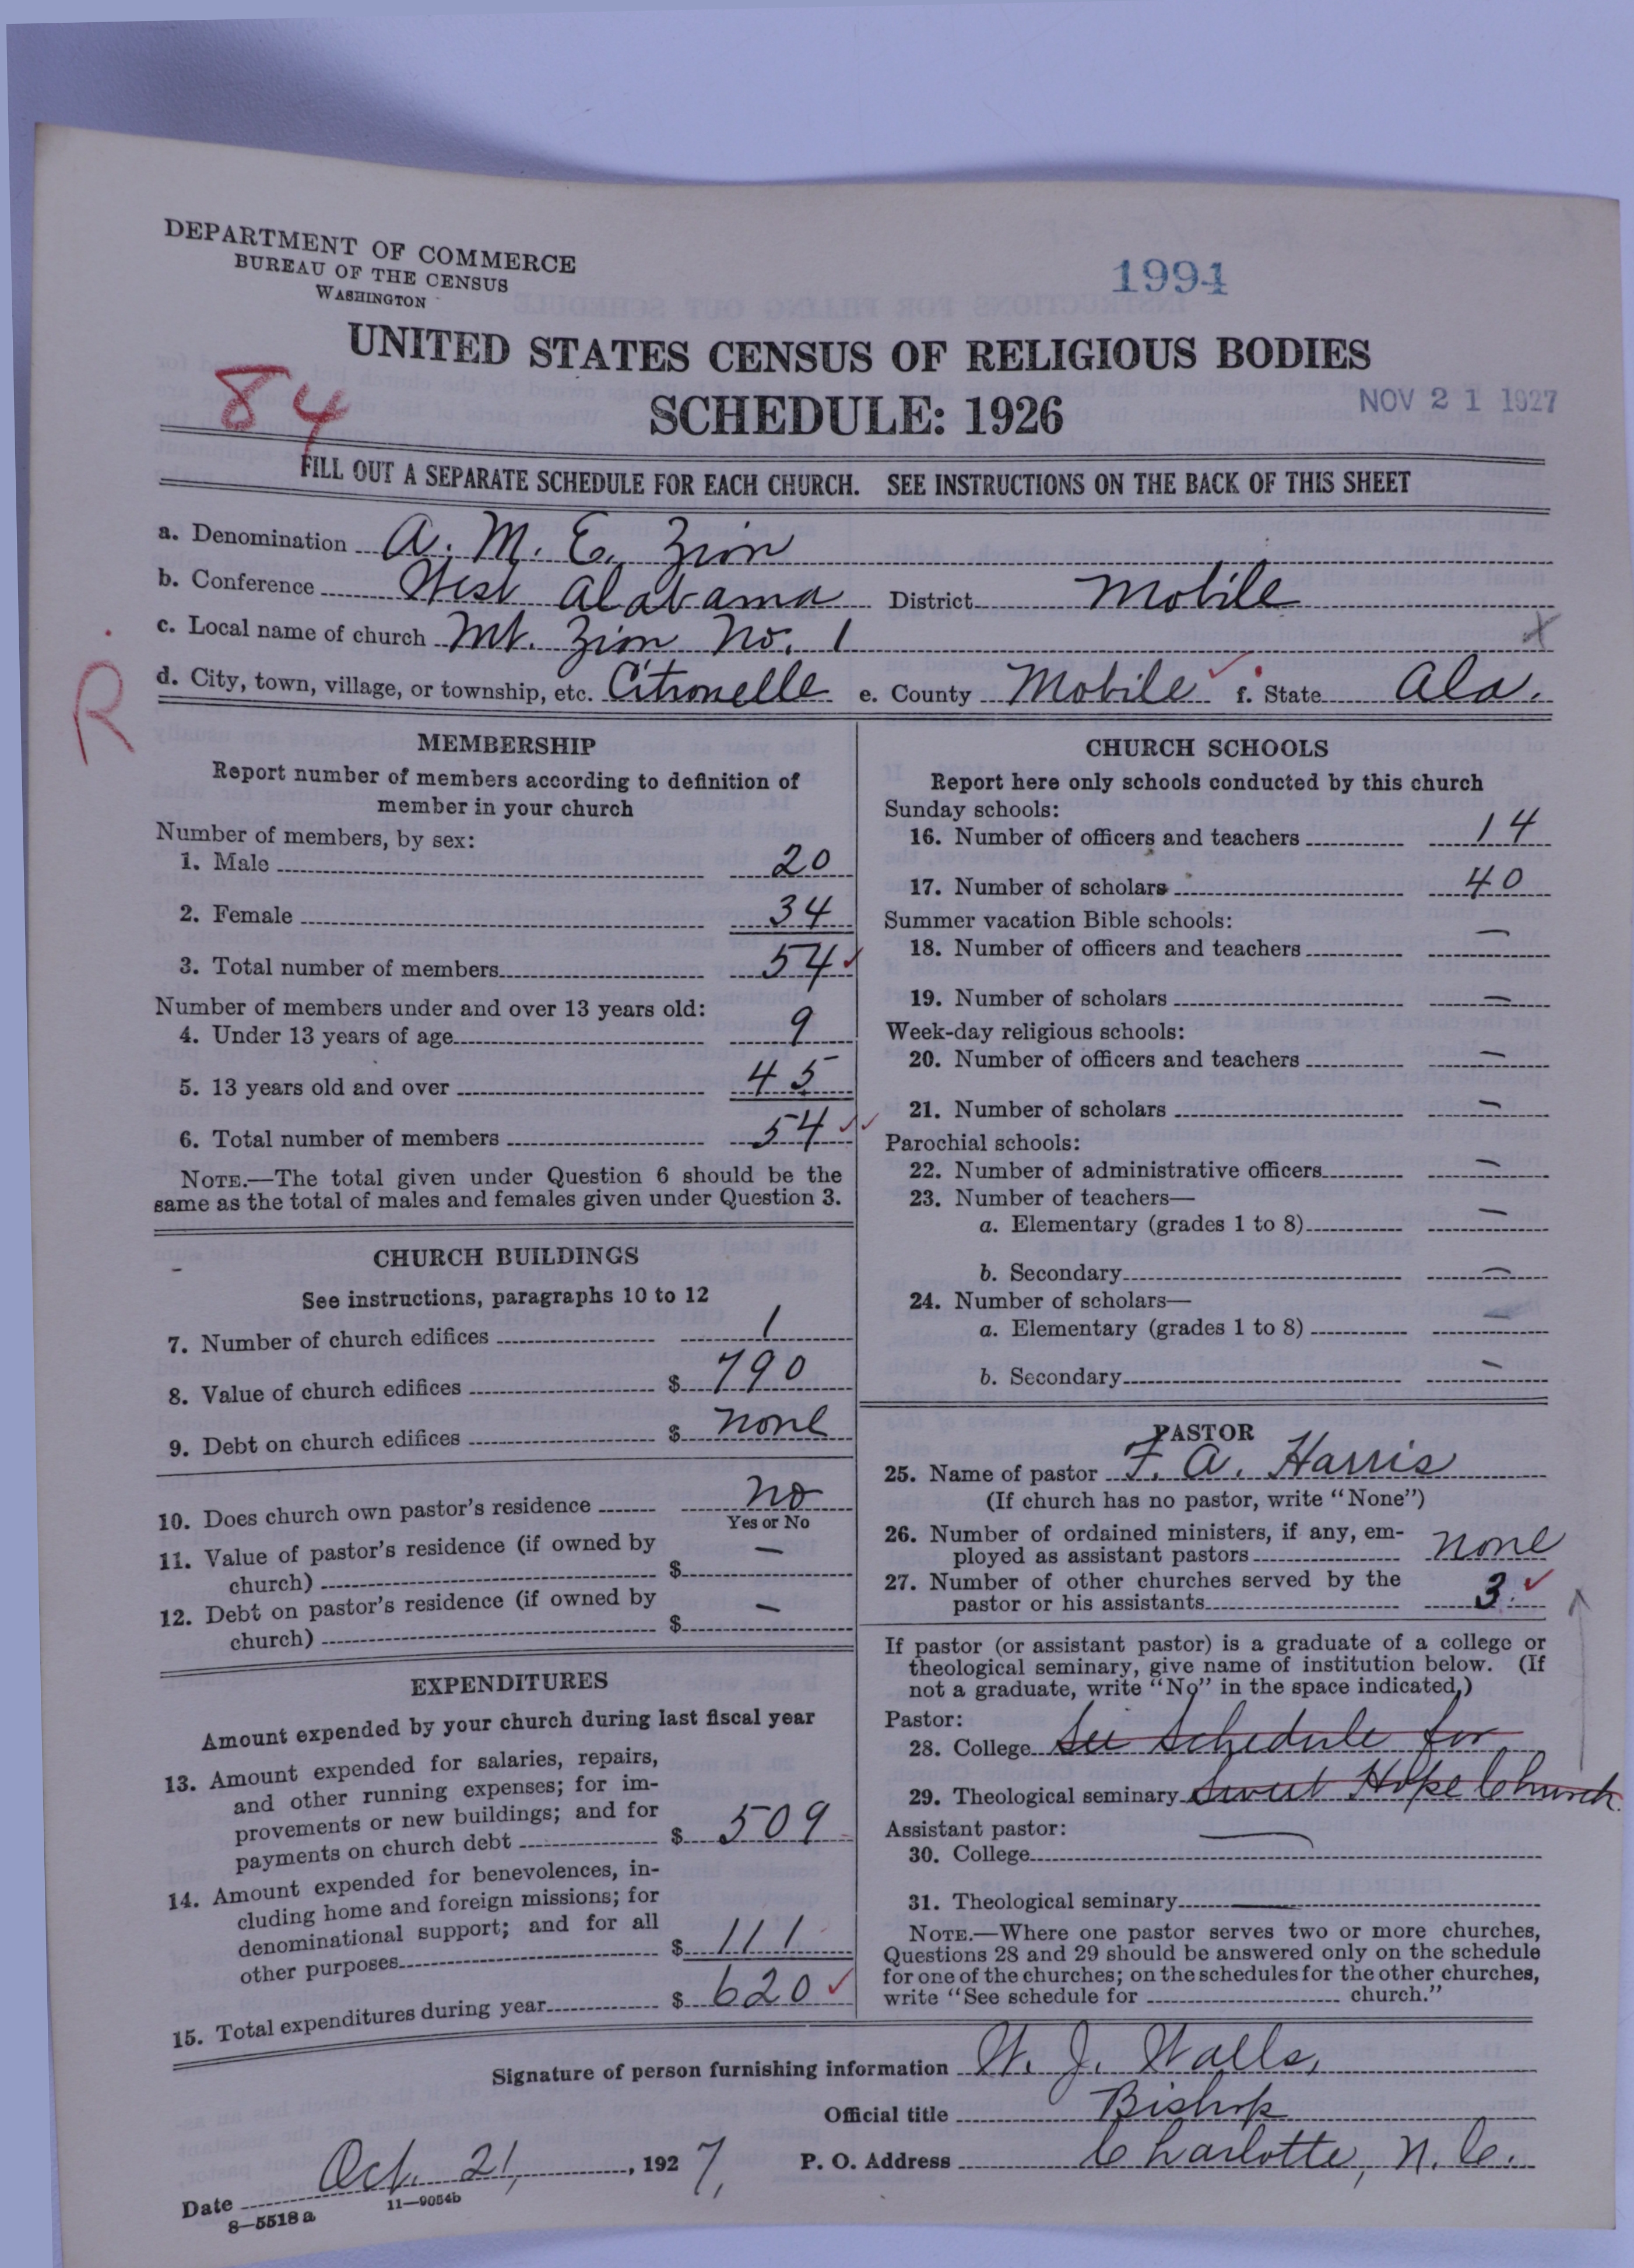 DEPARTMENT OF COMMERCE
BUREAU OF THE CENSUS
WASHINGTON
1994
UNITED STATES CENSUS OF RELIGIOUS BODIES
84
SCHEDULE: 1926
NOV 21 1927
FILL OUT A SEPARATE SCHEDULE FOR EACH CHURCH. SEE INSTRUCTIONS ON THE BACK OF THIS SHEET
a. Denomination A. M. E. Zion
b. Conference West Alabama District Mobile
c. Local name of church Mt. Zion No. 1 X
R
d. City, town, village, or township, etc. Citronelle e. County Mobile ✓ f. State Ala.
MEMBERSHIP
Report number of members according to definition of
member in your church
Number of members, by sex:
1. Male 20
2. Female 34
3. Total number of members 54 ✓
Number of members under and over 13 years old:
4. Under 13 years of age 9
5. 13 years old and over 45
6. Total number of members 54 ✓✓
NOTE.—The total given under Question 6 should be the
same as the total of males and females given under Question 3.
CHURCH BUILDINGS
See instructions, paragraphs 10 to 12
7. Number of church edifices 1
8. Value of church edifices $ 790
9. Debt on church edifices $ none
10. Does church own pastor's residence no
Yes or No
11. Value of pastor's residence (if owned by
church) $ —
12. Debt on pastor's residence (if owned by
church) $ —
EXPENDITURES
Amount expended by your church during last fiscal year
13. Amount expended for salaries, repairs,
and other running expenses; for im-
provements or new buildings; and for
payments on church debt $ 509
14. Amount expended for benevolences, in-
cluding home and foreign missions; for
denominational support; and for all
other purposes $ 111
15. Total expenditures during year $ 620 ✓
CHURCH SCHOOLS
Report here only schools conducted by this church
Sunday schools:
16. Number of officers and teachers 14
17. Number of scholars 40
Summer vacation Bible schools:
18. Number of officers and teachers —
19. Number of scholars —
Week-day religious schools:
20. Number of officers and teachers —
21. Number of scholars —
Parochial schools:
22. Number of administrative officers —
23. Number of teachers—
a. Elementary (grades 1 to 8) —
b. Secondary —
24. Number of scholars—
a. Elementary (grades 1 to 8) —
b. Secondary —
PASTOR
25. Name of pastor F. A. Harris
(If church has no pastor, write "None")
26. Number of ordained ministers, if any, em-
ployed as assistant pastors none
27. Number of other churches served by the
pastor or his assistants 3. ✓
If pastor (or assistant pastor) is a graduate of a college or
theological seminary, give name of institution below. (If
not a graduate, write "No" in the space indicated.)
Pastor:
28. College See Schedule for
29. Theological seminary Sweet Hope Church.
Assistant pastor:
30. College —
31. Theological seminary —
NOTE.—Where one pastor serves two or more churches,
Questions 28 and 29 should be answered only on the schedule
for one of the churches; on the schedules for the other churches,
write "See schedule for ____ church."
Signature of person furnishing information W. J. Walls,
Official title Bishop
Date Oct. 21, 1927, P. O. Address Charlotte, N. C.
8—5518 a 11—9054b